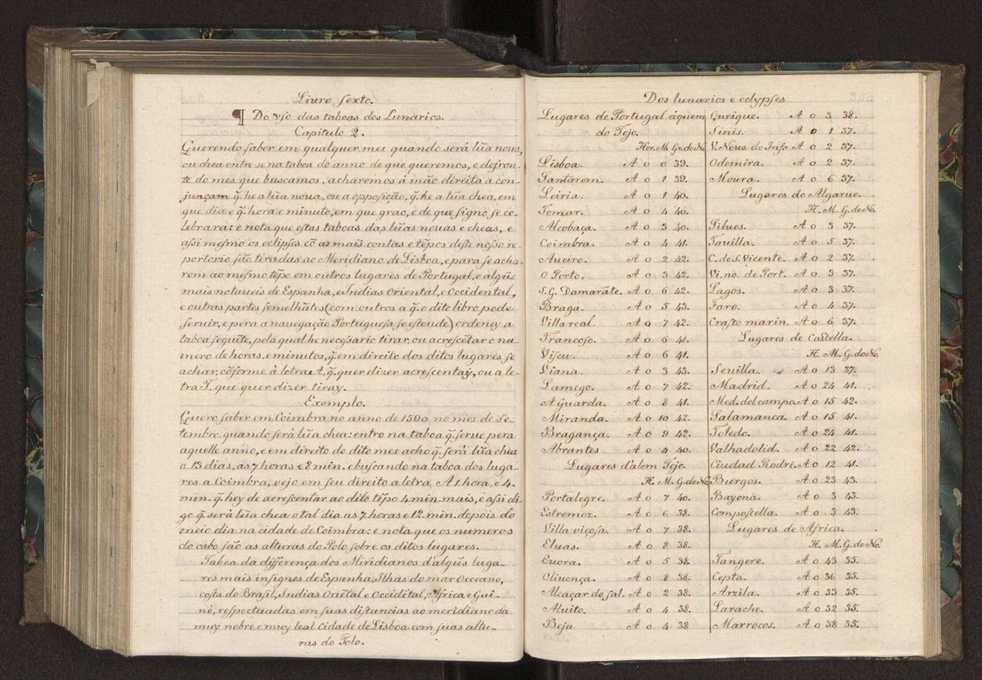 Liuro ſexto.
¶ Do vſo das taboas dos Lunarios.
Capitulo 2.
Querendo ſaber em qualquer mes quando ſerá lũa noua,
ou chea entrẽ na taboa do anno de que queremos, e defron-
te do mes que buscamos, acharemos á mão direita a con-
junçam q̃ he a lũa noua, ou a oppoſição, q̃ he a lũa chea, em
que dia e q̃ hora e minuto, em que grao, e de que ſigno ſe ce-
lebrara: e nota que eſtas taboas das lũas nouas e cheas, e
aſsi meſmo os eclipſes cõ as mais contas e tẽpos deſte noſſo re-
portorio ſão tiradas ao Meridiano de Lisboa, e para ſe acha-
rem ao meſmo tẽpo em outros lugares de Portugal, e algũs
mais notaueis de Espanha, e Indias Oriental, e Occidental,
e outras partes ſemelhãtes (com outros a q̃ o dito libro pode
ſeruir, e pera a nauegação Portugueſa ſe eſtende) ordeney a
taboa ſeguĩte, pela qual he neceſsario tirar, ou acreſcẽtar o nu-
mero de horas, e minutos, q̃ em direito dos ditos lugares ſe
achar, cõforme á letra A, q̃ quer dizer acreſcentay, ou a le-
tra T, que quer dizer tiray.
Exemplo.
Quero ſaber em Coimbra no anno de 1590 no mes de Se-
tembro quando ſerá lũa chea: entro na taboa q̃ ſerue pera
aquelle anno, e em direito do dito mes acho q̃ ſerá lũa chea
a 13 dias, as 7 horas e 8 min. e buſcando na taboa dos luga-
res a Coimbra, vejo em ſeu direito a letra, A 1 hora, e 4.
min. q̃ hey de acreſsentar ao dito tẽpo 4 min. mais, e aſsi di-
go q̃ ſerá lũa chea o tal dia as 7 horas e 12 min. depois do
meio dia na cidade de Coimbra: e nota que os numeros
do cabo ſão as alturas do Polo ſobre os ditos lugares.
Taboa da differença dos Meridianos d'algũs luga-
res mais inſignes de Espanha, Ilhas do mar Occeano,
coſta do Braſil, Indias Oriẽtal e Occidẽtal, Africa e Gui-
né, reſpectuadas em ſuas diſtancias ao meridiano da
muy nobre e muy leal cidade de Lisboa com ſuas altu-
ras do Polo.
Dos lunarios e eclypſes
Lugares de Portugal áquem
do Tejo.
Hor. M. G. de No.
Lisboa. A 0 0 39.
Santarem. A 0 1 39.
Leiria. A 0 1 40.
Tomar. A 0 4 40.
Alcobaça. A 0 3 40.
Coimbra. A 0 4 41.
Aueiro. A 0 2 42.
O Porto. A 0 3 42.
S. G. Damarãte. A 0 6 42.
Braga. A 0 5 43.
Villa real. A 0 7 42.
Francoſo. A 0 6 41.
Viſeu. A 0 6 41.
Viana. A 0 3 43.
Lamego. A 0 7 42.
A Guarda. A 0 8 41.
Miranda. A 0 10 42.
Bragança. A 0 9 42.
Abrantes A 0 4 40.
Lugares d'alem Tejo
H. M. G. de No.
Portalegre. A 0 7 40.
Estremoz. A 0 6 39.
Villa viçoſa. A 0 7 38.
Eluas. A 0 8 38.
Euora. A 0 5 38.
Oliuença. A 0 8 38.
Alcaçar do ſal. A 0 2 38.
Aluito. A 0 4 38.
Beja A 0 4 38
Ourique. A 0 3 38.
Sinis. A 0 1 37.
V. Noua do Info A 0 2 37.
Odemira. A 0 2 37.
Moura. A 0 6 37.
Lugares do Algarue.
H. M. G. de No.
Silues. A 0 3 37.
Tauilla. A 0 5 37.
C. de S. Vicente. A 0 2 37.
Vi. no. de Port. A 0 3 37.
Lagos. A 0 3 37.
Faro. A 0 4 37.
Craſto marin. A 0 6 37.
Lugares de Caſtella.
H. M. G. de No.
Seuilla. A 0 13 37.
Madrid. A 0 24 41.
Med. del campo. A 0 15 42.
Salamanca. A 0 15 41.
Toledo. A 0 24 41.
Valhadolid. A 0 22 42.
Ciudad Rodro. A 0 12 41.
Burgos. A 0 23 43.
Bayona. A 0 3 43.
Compoſtella. A 0 3 43.
Lugares de Africa.
H. M. G. de No.
Tangere. A 0 43 35.
Cepta. A 0 36 35.
Arzila. A 0 33 35.
Larache. A 0 32 35.
Marrocos. A 0 38 35.